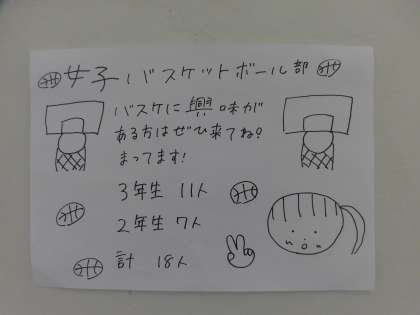 女子バスケットボール部
バスケに興味が
ある方はぜひ来てね?
まってます!
3年生 11人
2年生 7人
計 18人